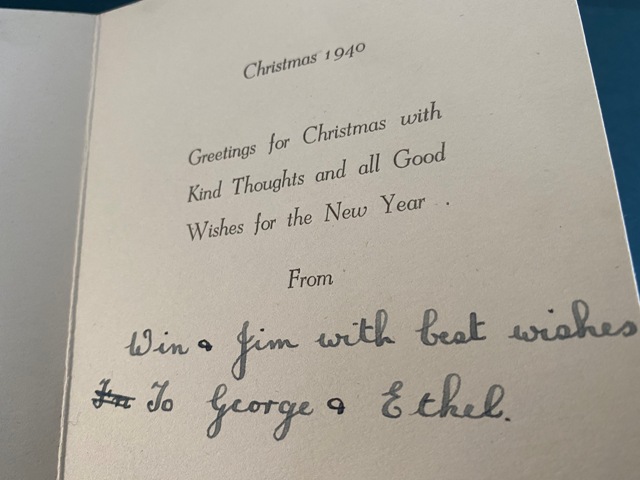 Christmas 1940
Greetings for Christmas with
Kind Thoughts and all Good
Wishes for the New Year .
From
Win & Jim with best wishes
To George & Ethel.